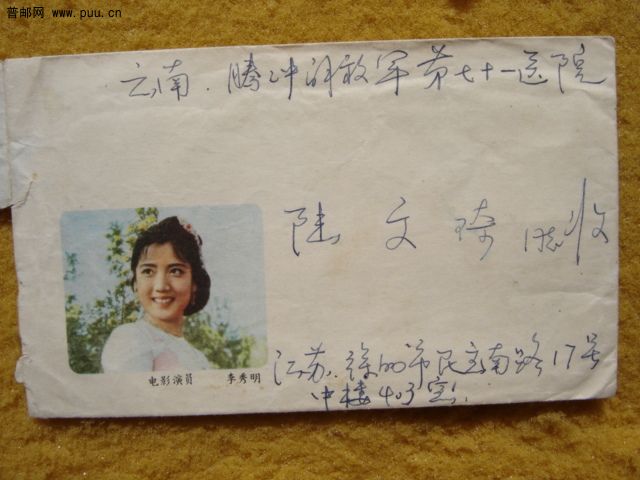 普邮网 www.puu.cn
云南.腾冲解放军第七十一医院
陆文琦 收
电影演员 李秀明
江苏.徐州市民主南路17号
中楼403室